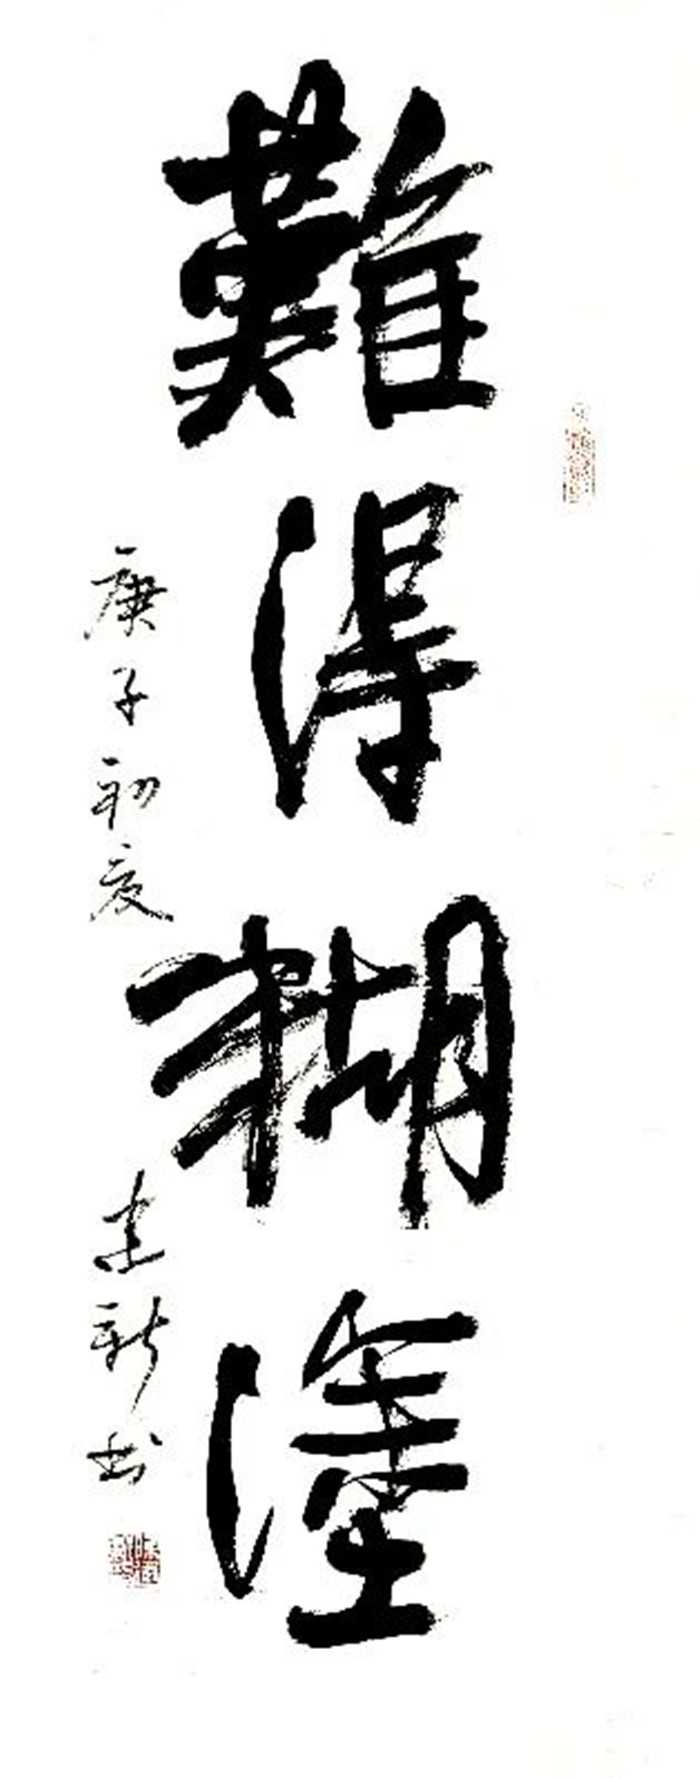 難得糊塗
庚子初夏 建新书